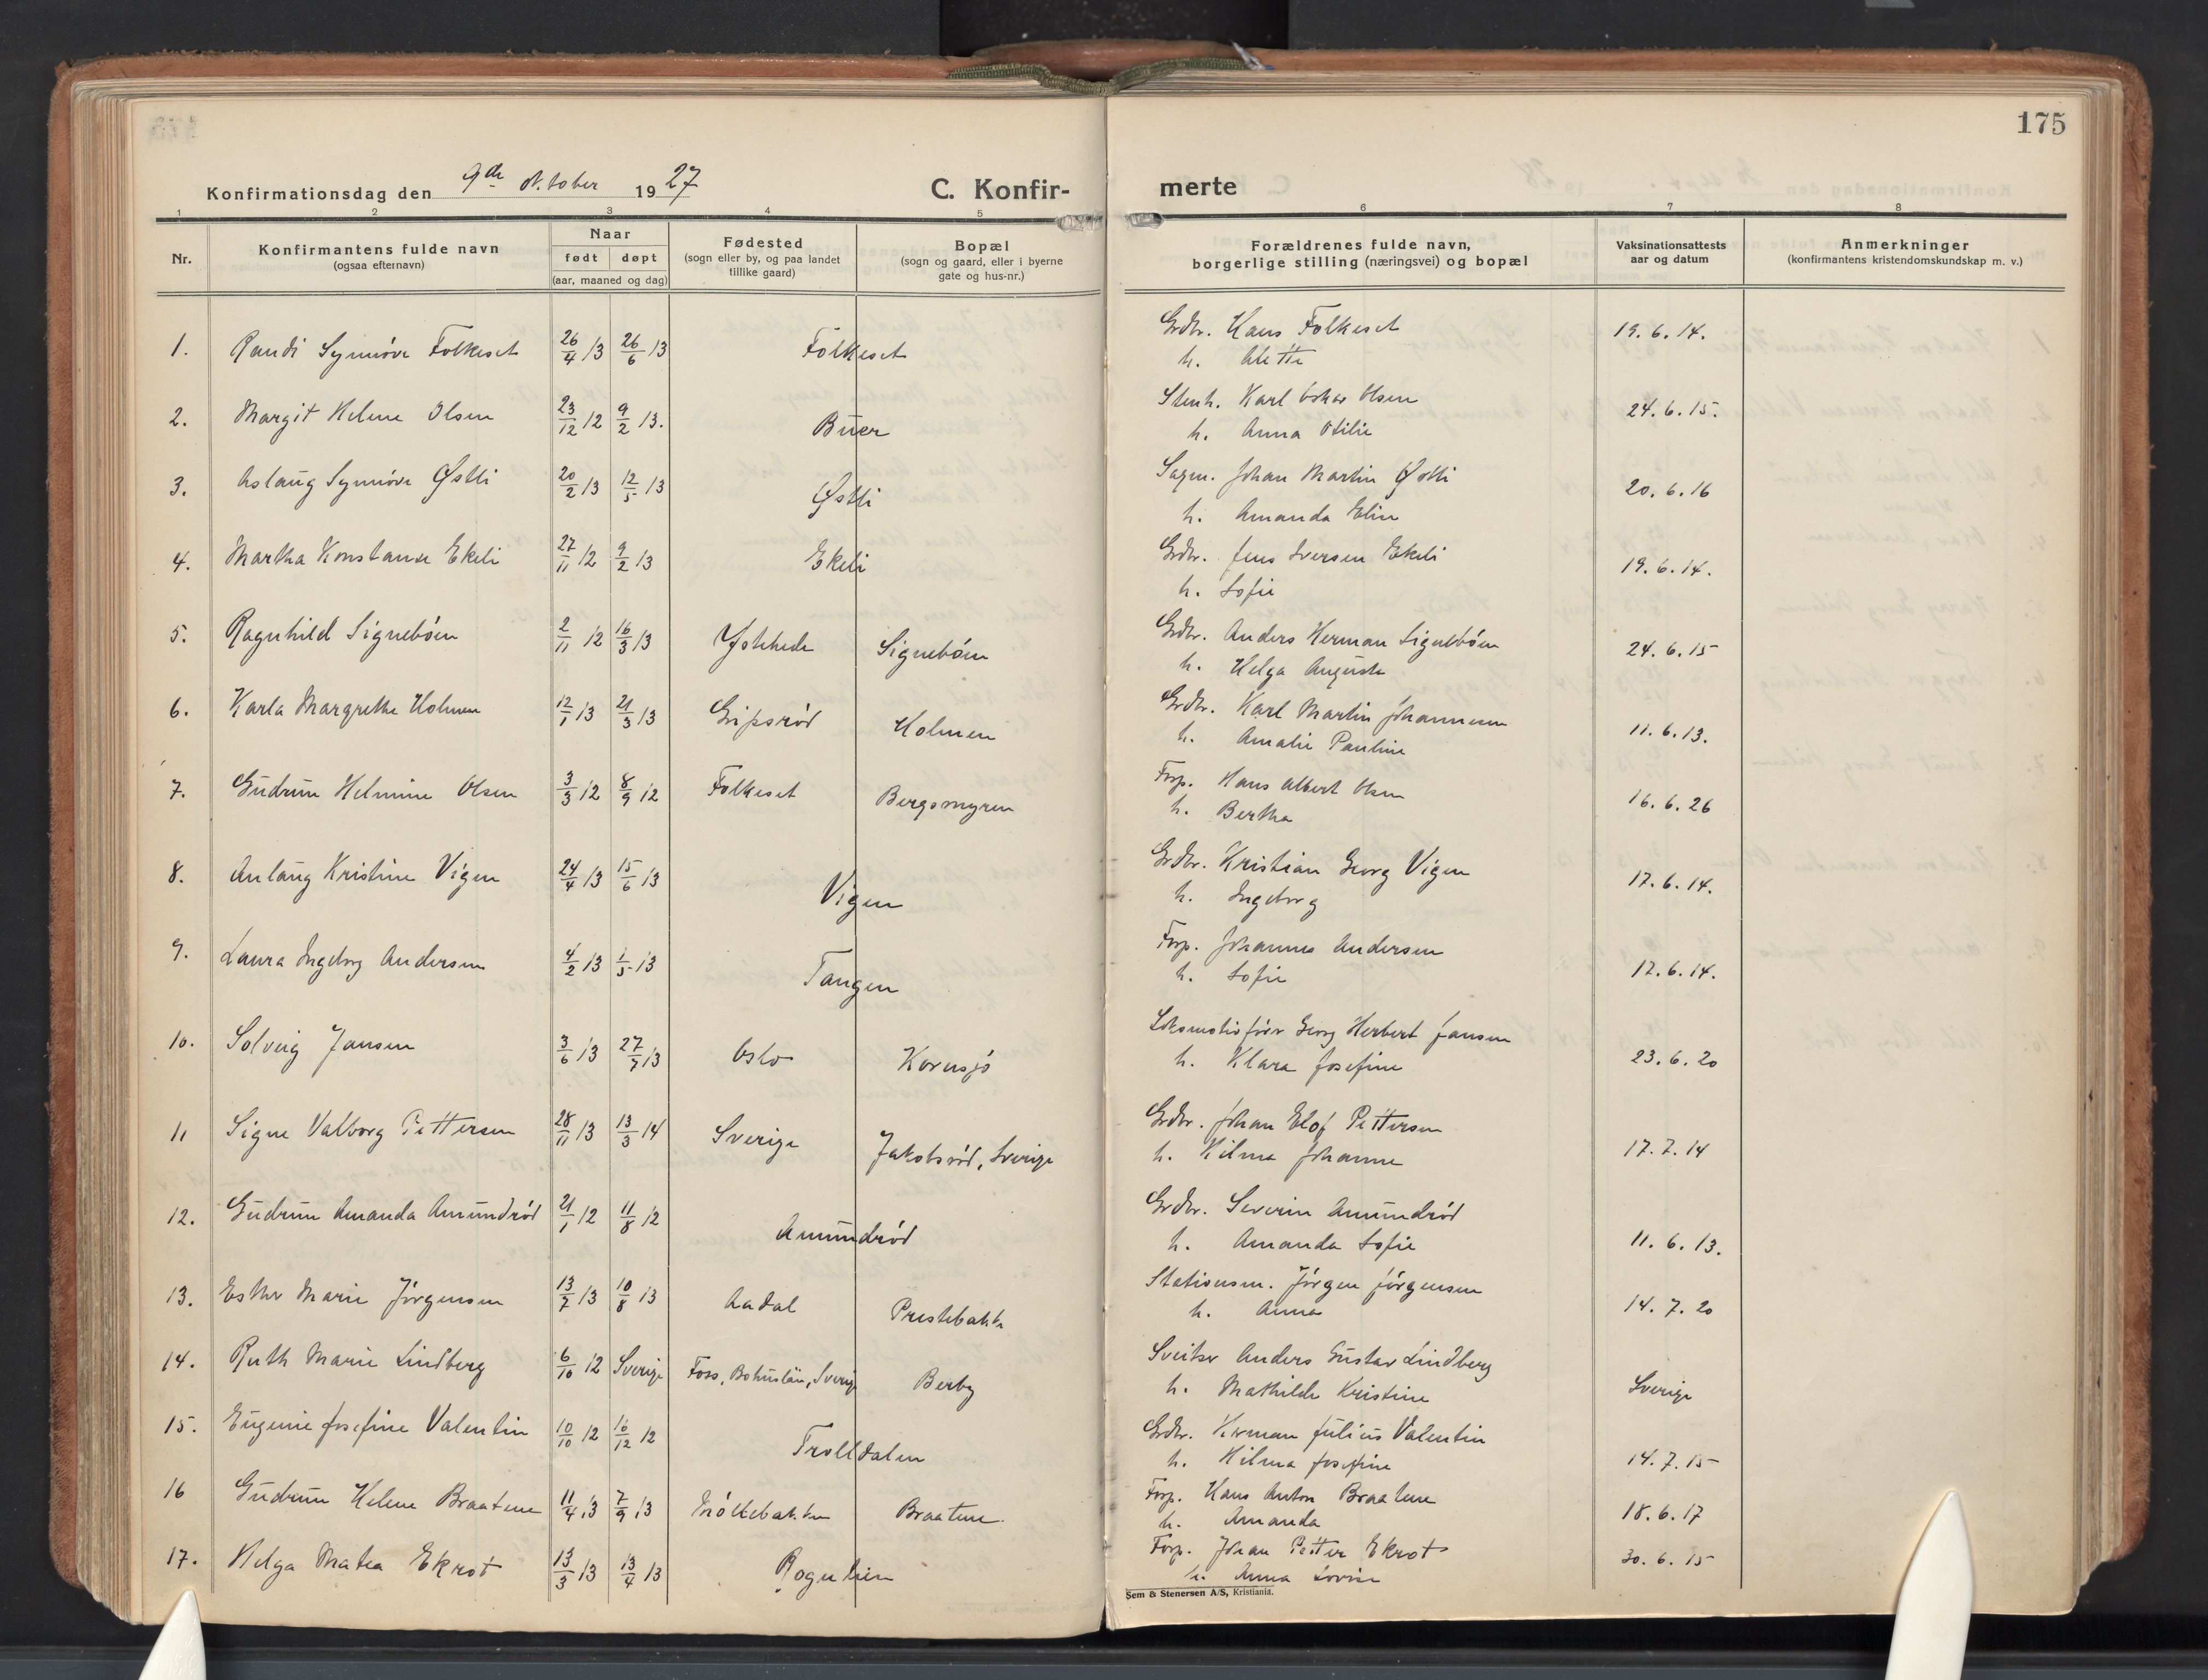 175
Konfirmationsdag den 9de oktober 1927
C. Konfir- merte
1 2 3 4 5 6 7 8
Nr.
Konfirmantens fulde navn
(ogsaa efternavn)
Naar
født døpt
(aar, maaned og dag)
Fødested
(sogn eller by, og paa landet
tillike gaard)
Bopæl
(sogn og gaard, eller i byerne
gate og hus-nr.)
Forældrenes fulde navn,
borgerlige stilling (næringsvei) og bopæl
Vaksinationsattests
aar og datum
Anmerkninger
(konfirmantens kristendomskundskap m. v.)
1. Randi Synnöve Folkeset 26/4 13 26/6 13 Folkeset Grdbr. Hans Folkeset 19.6.14.
h. Alette
2. Margit Helene Olsen 23/12 12 9/2 13. Buer Stenh. Karl Oskar Olsen 24.6.15.
h. Anna Otilie
3. Aslaug Synnöve Østli 20/2 13 12/5 13 Østli Sagm. Johan Martin Østli 20.6.16
h. Amanda Elin
4. Martha Konstanse Ekeli 27/11 12 9/2 13 Ekeli Grdbr. Jens Iversen Ekeli 19.6.14.
h. Sofie
5. Ragnhild Signebøen 2/11 12 16/3 13 Ystehede Signebøen Grdbr. Anders Herman Signebøen 24.6.15
h. Helga Augusta
6. Karla Margrethe Holmen 12/1 13 21/3 13 Gripsrød Holmen Grdbr. Karl Martin Johannesen 11.6.13.
h. Amalie Pauline
7. Gudrun Helmine Olsen 3/3 12 8/9 12 Folkeset Bergsmyren Forp. Hans Albert Olsen 16.6.26
h. Bertha
8. Anlaug Kristine Vigen 24/4 13 15/6 13 Vigen Grdbr. Kristian Georg Vigen 17.6.14.
h. Ingeborg
9. Laura Ingeborg Andersen 4/2 13 1/5 13 Tangen Forp. Johannes Andersen 17.6.14.
h. Sofie
10. Solveig Jansen 3/6 13 27/7 13 Oslo Kornsjø Lokomotivförer Georg Herbert Jansen 23.6.20
h. Klara Josefine
11 Signe Valborg Pettersen 28/11 13 13/3 14 Sverige Jakobsrød, Sverige Grdbr. Johan Elof Pettersen 17.7.14
h. Hilma Johanne
12. Gudrun Amanda Amundrød 21/1 12 11/8 12 Amundrød Grdbr. Severin Amundrød 11.6.13.
h. Amanda Sofie
13. Esther Marie Jörgensen 13/7 13 10/8 13 Aadal Prestebakke Stationsm. Jörgen Jörgensen 14.7.20
h. Anna
14. Ruth Marie Lindberg 6/10 12 Sverige Foss, Bohuslän, Sverige Berby Sveitser Anders Gustav Lindberg Sverige
h. Mathilde Kristine
15. Eugenie Josefine Valentin 10/10 12 16/12 12 Trolldalen Grdbr. Herman Julius Valentin 14.7.15
h. Hilma Josefine
16 Gudrun Helene Braatene 11/4 13 7/9 13 Braatene. Forp. Hans Anton Braatene 18.6.17
h. Amanda
17. Helga Matea Ekrot 13/3 13 13/4 13 Rognlien Forp. Johan Petter Ekrot 30.6.15
h. Anna Lovise
Sem & Stenersen A/S, Kristiania.